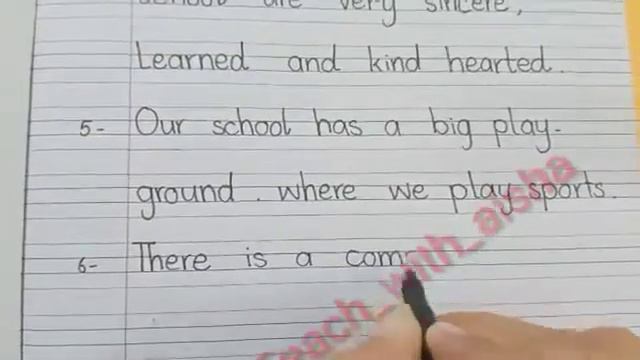 school are very sincere,
Learned and kind hearted.
5- Our school has a big play-
ground. where we play sports.
6- There is a com
teach_with_aisha